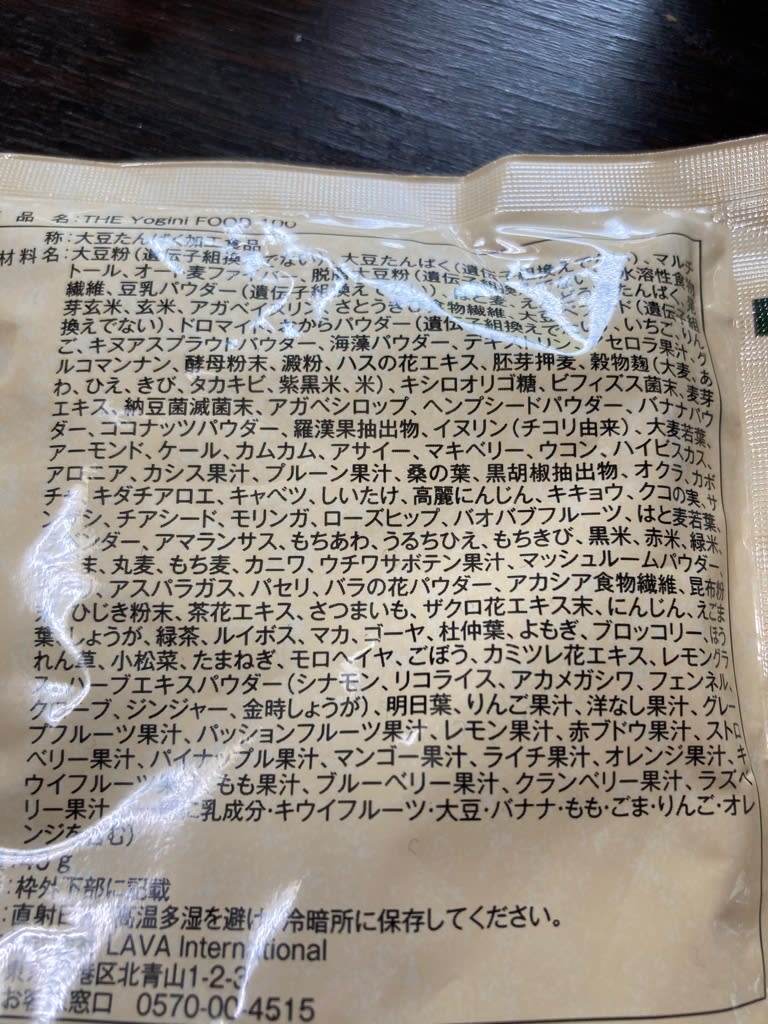 品 名:THE Yogini FOOD 100
称:大豆たんぱく加工食品
材料名:大豆粉(遺伝子組換えでない)、大豆たんぱく(遺伝子組換えでない)、マルチ
トール、オーツ麦ファイバー、脱脂大豆粉(遺伝子組換えでない)、水溶性食物
繊維、豆乳パウダー(遺伝子組換えでない)、はと麦、えんどうたんぱく、発
芽玄米、玄米、アガベイヌリン、さとうきび食物繊維、大豆 ド(遺伝子組
換えでない)、ドロマイト、おからパウダー(遺伝子組換えでない)、いちご、りん
ご、キヌアスプラウトパウダー、海藻パウダー、デキストリン、アセロラ果汁、グ
ルコマンナン、酵母粉末、澱粉、ハスの花エキス、胚芽押麦、穀物麹(大麦、あ
わ、ひえ、きび、タカキビ、紫黒米、米)、キシロオリゴ糖、ビフィズス菌末、麦芽
エキス、納豆菌滅菌末、アガベシロップ、ヘンプシードパウダー、バナナパウ
ダー、ココナッツパウダー、羅漢果抽出物、イヌリン(チコリ由来)、大麦若葉、
アーモンド、ケール、カムカム、アサイー、マキベリー、ウコン、ハイビスカス、
アロニア、カシス果汁、プルーン果汁、桑の葉、黒胡椒抽出物、オクラ、カボ
チャ、キダチアロエ、キャベツ、しいたけ、高麗にんじん、キキョウ、クコの実、サ
ンザシ、チアシード、モリンガ、ローズヒップ、バオバブフルーツ、はと麦若葉、
ンダー、アマランサス、もちあわ、うるちひえ、もちきび、黒米、赤米、緑米、
ま、丸麦、もち麦、カニワ、ウチワサボテン果汁、マッシュルームパウダー、
、アスパラガス、パセリ、バラの花パウダー、アカシア食物繊維、昆布粉
末、ひじき粉末、茶花エキス、さつまいも、ザクロ花エキス末、にんじん、えごま
葉、しょうが、緑茶、ルイボス、マカ、ゴーヤ、杜仲葉、よもぎ、ブロッコリー、ほう
れん草、小松菜、たまねぎ、モロヘイヤ、ごぼう、カミツレ花エキス、レモングラ
ス、ハーブエキスパウダー(シナモン、リコライス、アカメガシワ、フェンネル、
クローブ、ジンジャー、金時しょうが)、明日葉、りんご果汁、洋なし果汁、グレー
プフルーツ果汁、パッションフルーツ果汁、レモン果汁、赤ブドウ果汁、ストロ
ベリー果汁、パイナップル果汁、マンゴー果汁、ライチ果汁、オレンジ果汁、キ
ウイフルーツ果汁、もも果汁、ブルーベリー果汁、クランベリー果汁、ラズベ
リー果汁 に乳成分・キウイフルーツ・大豆・バナナ・もも・ごま・りんご・オレ
ンジを含む)
g
:枠外下部に記載
:直射日光、高温多湿を避け、冷暗所に保存してください。
LAVA International
東京都港区北青山1-2-3
お客様窓口 0570-00-4515